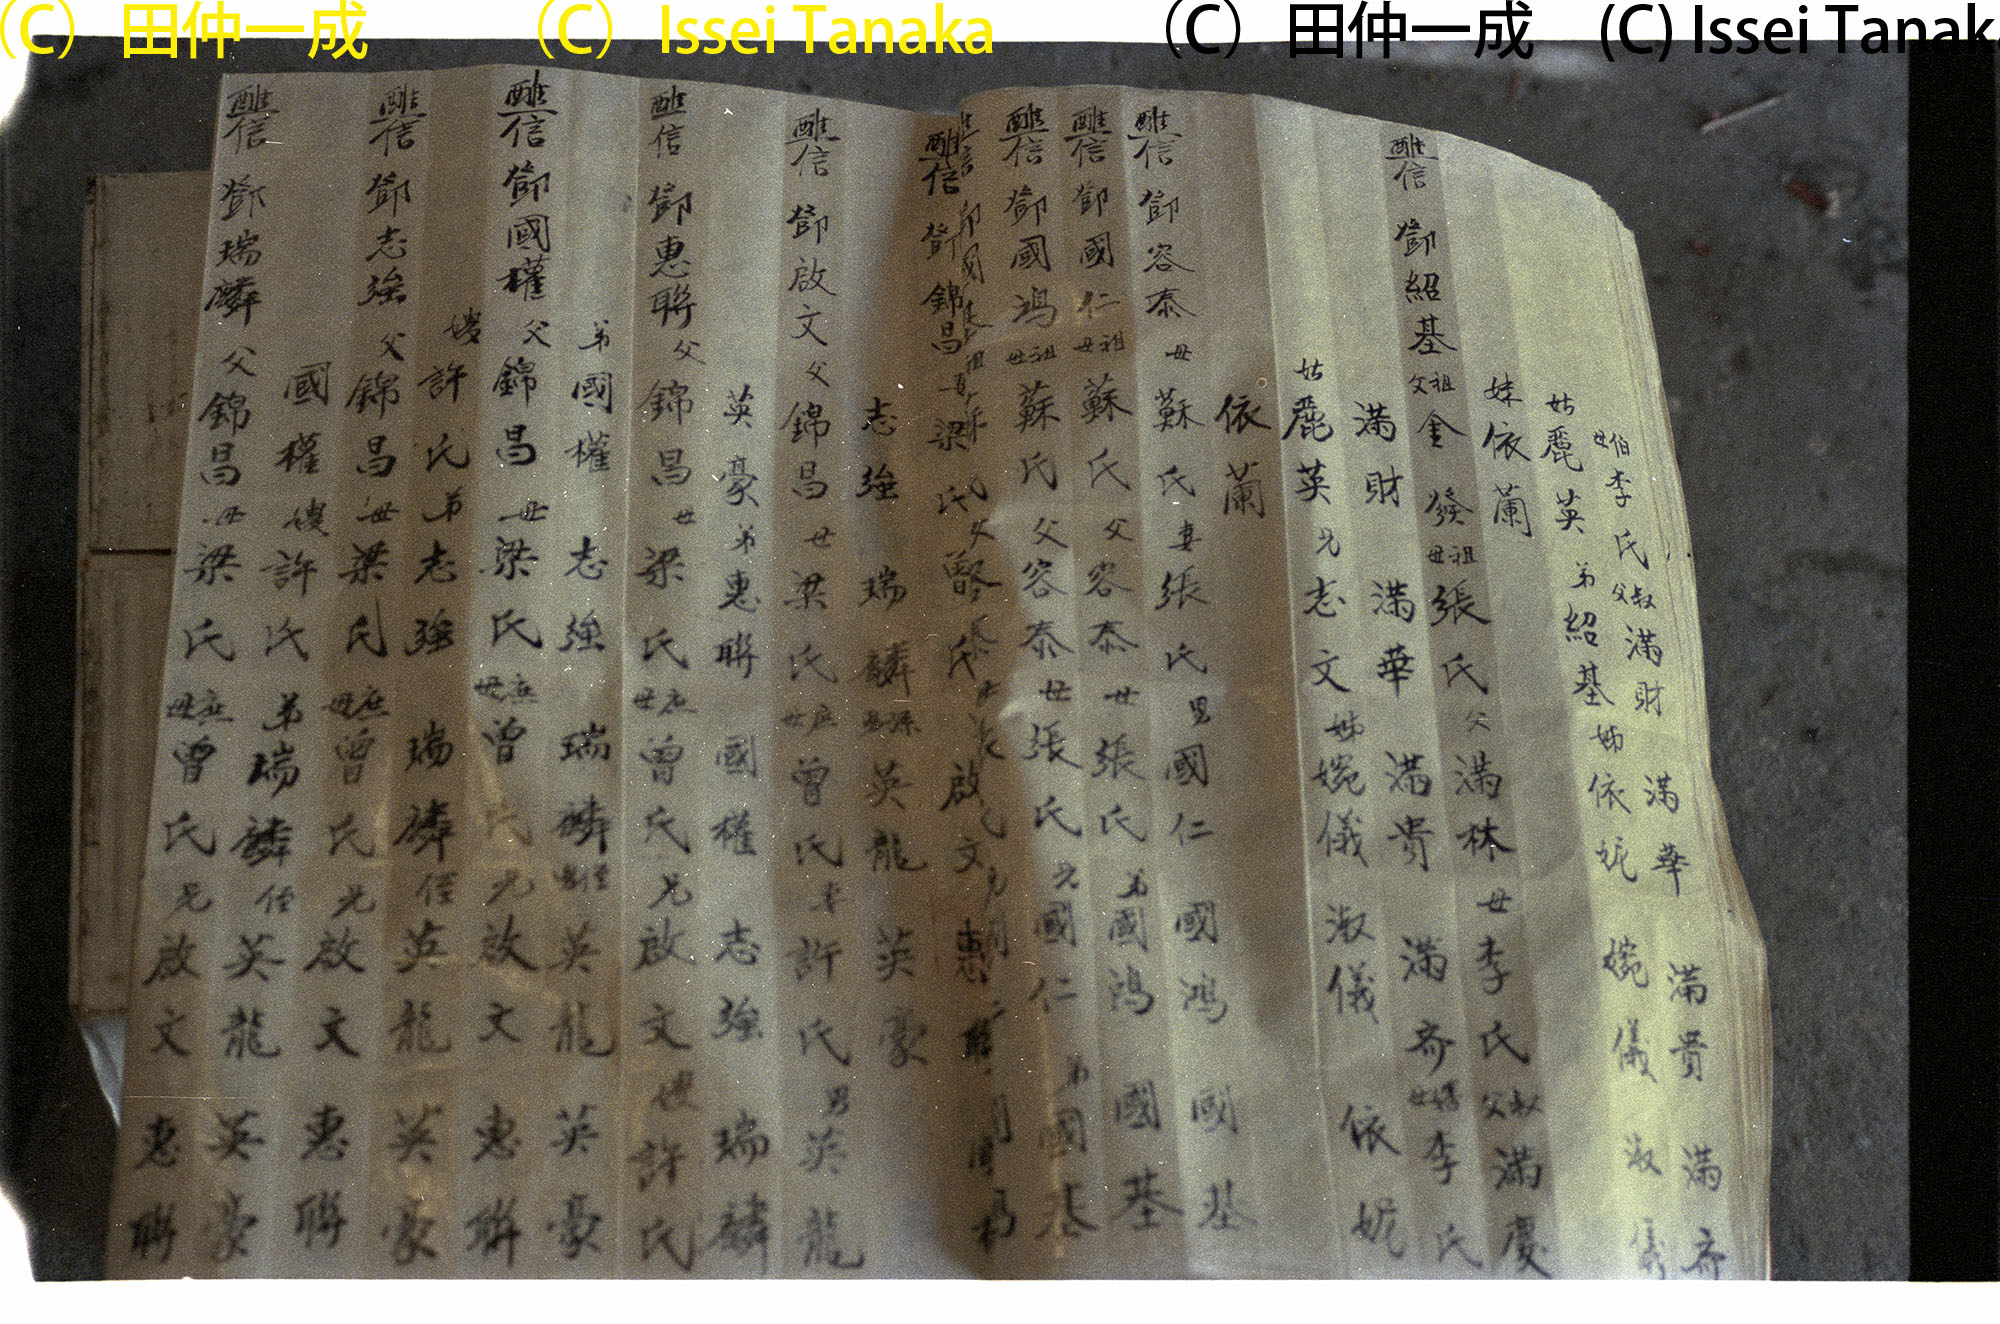 (C) 田仲一成 (C) Issei Tanaka (C) 田仲一成 (C) Issei Tanaka
伯母李氏 叔父滿財 滿華 滿貴 滿齊
姑麗英 弟紹基 姊依妮 婉儀 淑儀
妹依蘭
醮信 鄧紹基 祖父金發 祖母張氏 父滿林 母李氏 叔父滿慶
滿財 滿華 滿貴 滿齊 李氏
姑麗英 兄志文 姊婉儀 淑儀 依妮
依蘭
醮信 鄧容泰 母蘇氏 妻張氏 男國仁 國鴻 國基
醮信 鄧國仁 祖母蘇氏 父容泰 母張氏 弟國鴻 國基
醮信 鄧國鴻 祖母蘇氏 父容泰 母張氏 兄國仁 弟國基
醮信 鄧錦昌 梁氏 曾氏 啟文 惠聯
志強 瑞麟 英龍 英豪
醮信 鄧啟文 父錦昌 母梁氏 庶母曾氏 許氏 男英龍
英豪 弟惠聯 國權 志強 瑞麟
醮信 鄧惠聯 父錦昌 母梁氏 庶母曾氏 兄啟文 嫂許氏
弟國權 志強 瑞麟 英龍 英豪
醮信 鄧國權 父錦昌 母梁氏 庶母曾氏 兄啟文 惠聯
嫂許氏 弟志強 瑞麟 侄英龍 英豪
醮信 鄧志強 父錦昌 母梁氏 庶母曾氏 兄啟文 惠聯
國權 嫂許氏 弟瑞麟 侄英龍 英豪
醮信 鄧瑞麟 父錦昌 母梁氏 庶母曾氏 兄啟文 惠聯